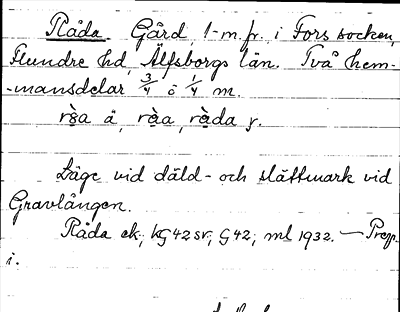 Råda Gård, 1 m. fr. i Fors socken,
Flundre hd, Älfsborgs län. Två hem-
-mansdelar 3/4 o 1/4 m.
a ä, ràa, ràda y.
Läge vid däld- och slättmark vid
Gravlången.
Råda ek, kG42sv, G42, ml 1932. — Prep.
i.